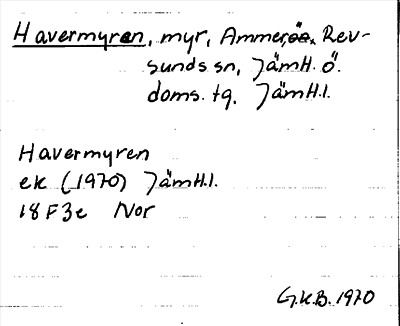 Havermyren, myr, Ammer, Rev-
sunds sn, Jämtl. ö.
doms. tg. Jämtl.l.
Havermyren
ek (1970) Jämtl.l.
18F3e Nor
G.K.B. 1970